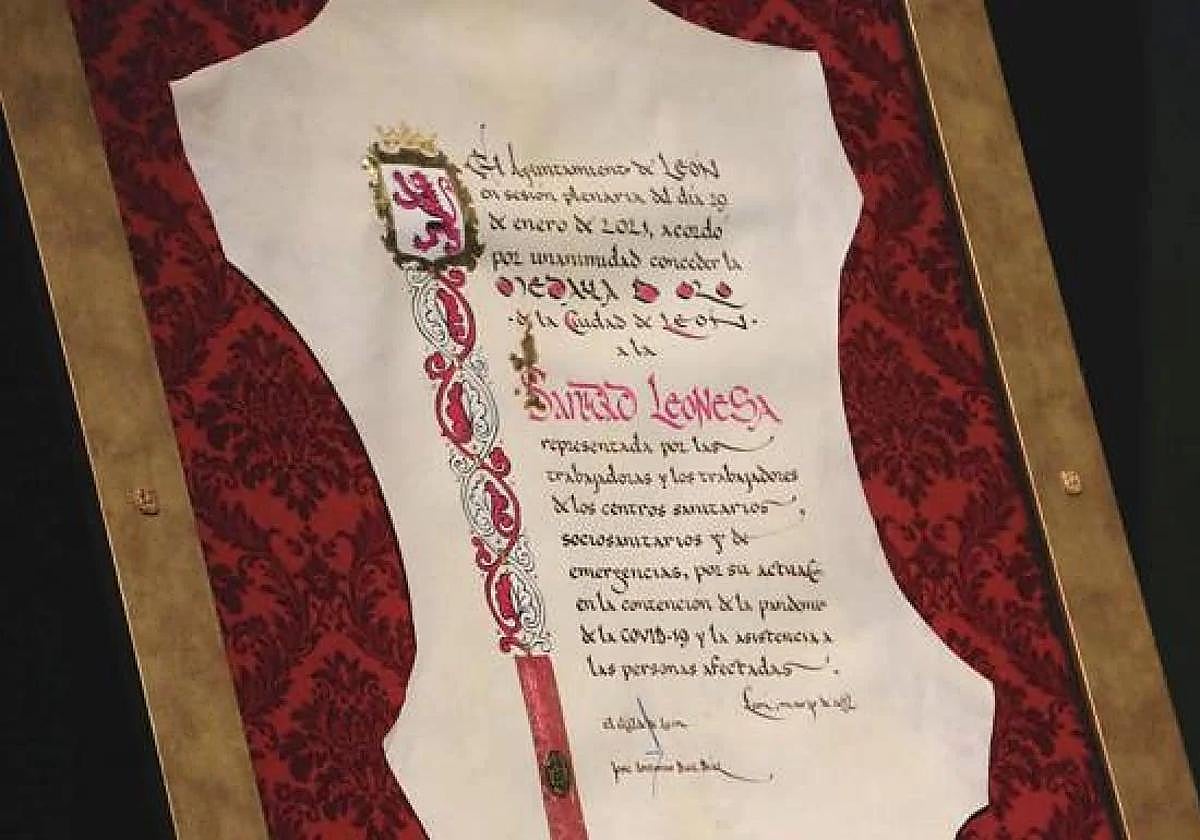 El Ayuntamiento de León
en sesión plenaria del día 29
de enero de 2021, acordó
por unanimidad conceder la
MEDALLA DE ORO
de la Ciudad de LEON
a la
SANIDAD LEONESA
representada por las
trabajadoras y los trabajadores
de los centros sanitarios,
sociosanitarios y de
emergencias, por su actuac
en la contencion de la pandemia
de la COVID-19 y la asistencia a
las personas afectadas.
León, marzo de
el alcalde de León
José Antonio Diez Díaz